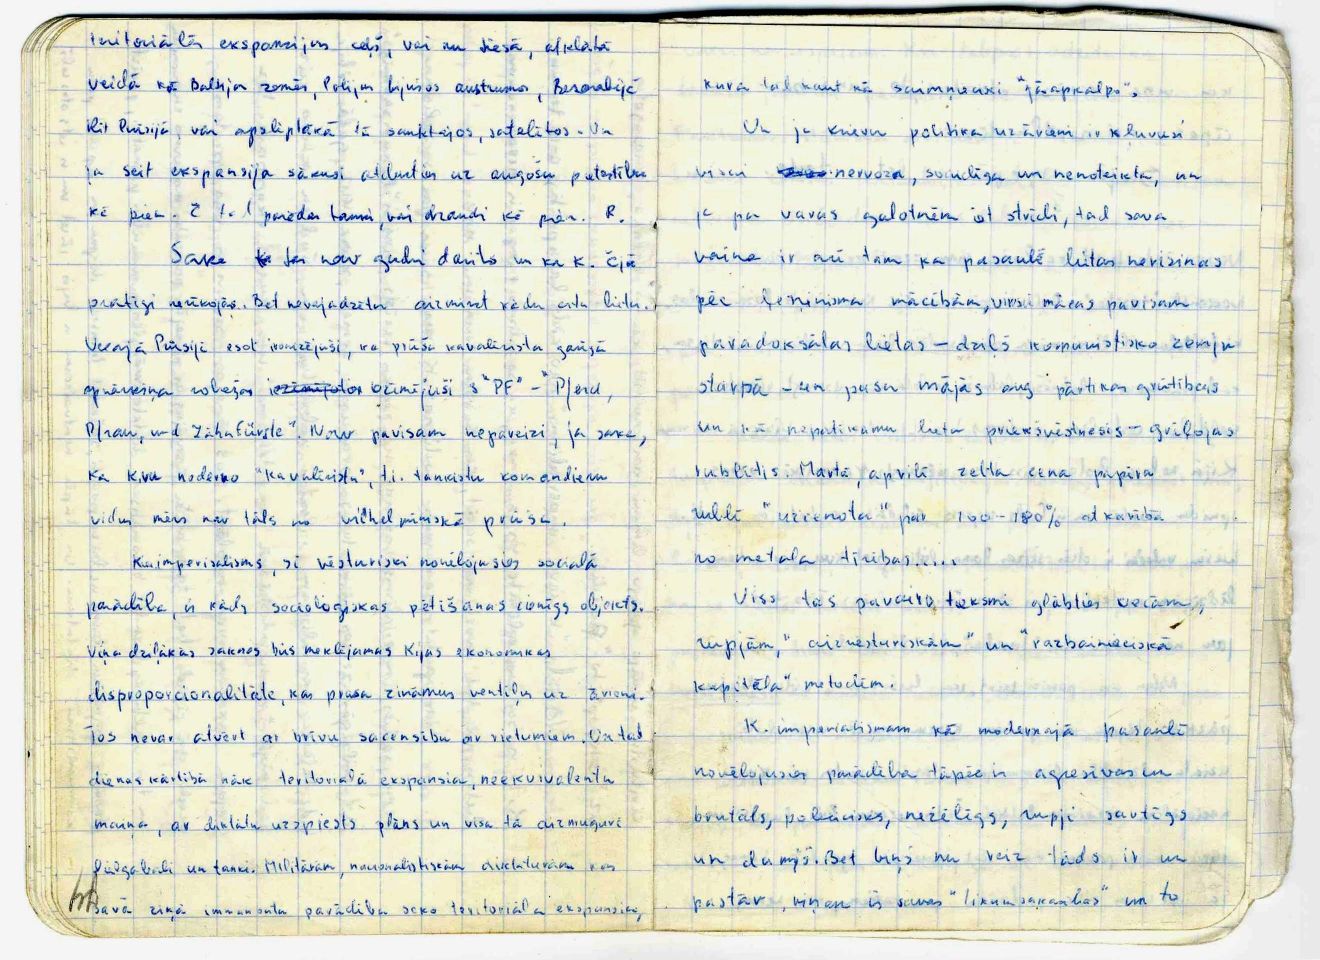 ekspansijas ceļš, vai nu tiešā, atklātā
veidā kā Baltijas zemēs, Polijas bijušos austrumos, Besarabijā
vai apslēptākā tā sauktajos, satelītos. Un
ja šeit ekspansija sākusi atdurties uz augošu pretestību
kā piem. vai draudi kā piem. R.
Saka nav gudri darīts un ka K. Čijā
prātīgi nerīkojās. Bet nevajadzētu aizmirst kādu citu lietu.
Vecajā Prūsijā esot ka prūšu kavalērista garīgā
robežas iezīmējuši s "PF" – "Pferd,
und Zähnbürste". Nav pavisam nepareizi, ja saka,
ka moderno "kavalēristu", t.i. tankistu komandieru
vidus mērs nav tāls no vilhelminiskā prūša.
imperialisms, šī vēsturiski novēlojusies sociālā
parādība, ir kāds socioloģiskas pētīšanas cienīgs objekts.
Viņa dziļākās saknes būs meklējamas ekonomikas
disproporcionalitātē, kas prasa zināmus ventiļus uz ārieni.
Tos nevar atvērt ar brīvu sacensību ar rietumiem. Un tad
dienas kārtībā nāk teritoriālā ekspansia, neekvivalenta
maiņa, ar diktātu uzspiests plāns un visa tā aizmugurē
lielgabali un tanki. Militārām, nacionālistiskām diktatūrām kas
savā ziņā immanenta parādība seko teritoriāla ekspansija,
kura tad kaut kā saimnieciski "jāapkalpo".
Un ja krievu politika uz ārieni ir kļuvusi
nervoza, un nenoteikta, un
ja pa varas galotnēm iet strīdi, tad sava
vaina ir arī tam ka pasaulē lietas nerisinas
pēc ļeņinisma mācībām, virsū mācas pavisam
paradoksālas lietas – dažs komunistisko zemju
starpā – un pašu mājās aug pārtikas grūtības
un kā nepatīkamu lietu priekšvēstnesis – grīļojas
rublītis. Martā, aprīlī zelta cena papīra
rublī "uzcenota" par 100–180% atkarībā
no metala tīrības.....
Viss tas pavairo tieksmi glābties vecām,
rupjām, "aizvēsturiskām" un
kapitāla" metodēm.
K. imperialismam kā modernajā pasaulē
novēlojusies parādība tāpēc ir agresīvas un
brutāls, policisks, nežēlīgs, rupji savtīgs
un dumjš. Bet viņš nu reiz tāds ir un
pastāv, viņam ir savas "likumsakarības" un to